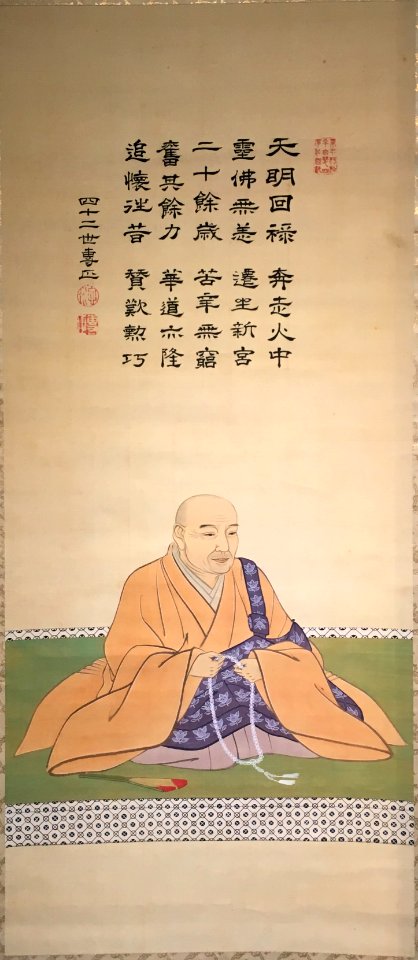 天明回祿 奔走火中
靈佛無恙 遷坐新宮
二十餘歳 苦辛無窮
奮其餘力 華道亦隆
追懐往昔 賛歎勲巧
四十二世專正